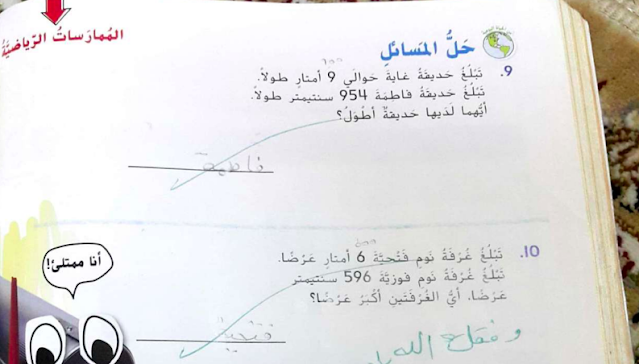 المُمارَساتُ الرّياضيَّةُ
حَلُّ المَسائلِ
9. تَبْلُغُ حَديقَةُ غايةَ حَوالَي 9 أمتارٍ طولاً.
تَبْلُغُ حَديقَةُ فاطِمَةَ 954 سنتيمتر طولاً.
أيُّهما لَدَيها حَديقَةٌ أطْوَلُ؟
فاطمة
10. تَبْلُغُ غُرْفَةُ نَومِ فَتْحيَّةَ 6 أمتارٍ عَرْضًا.
تَبْلُغُ غُرْفَةُ نَومِ فوزيَّةَ 596 سنتيمتر
عَرْضًا. أيُّ الغُرْفَتَينِ أكْبَرُ عَرْضًا؟
فتحية
أنا ممتلئ!
وفقك الله